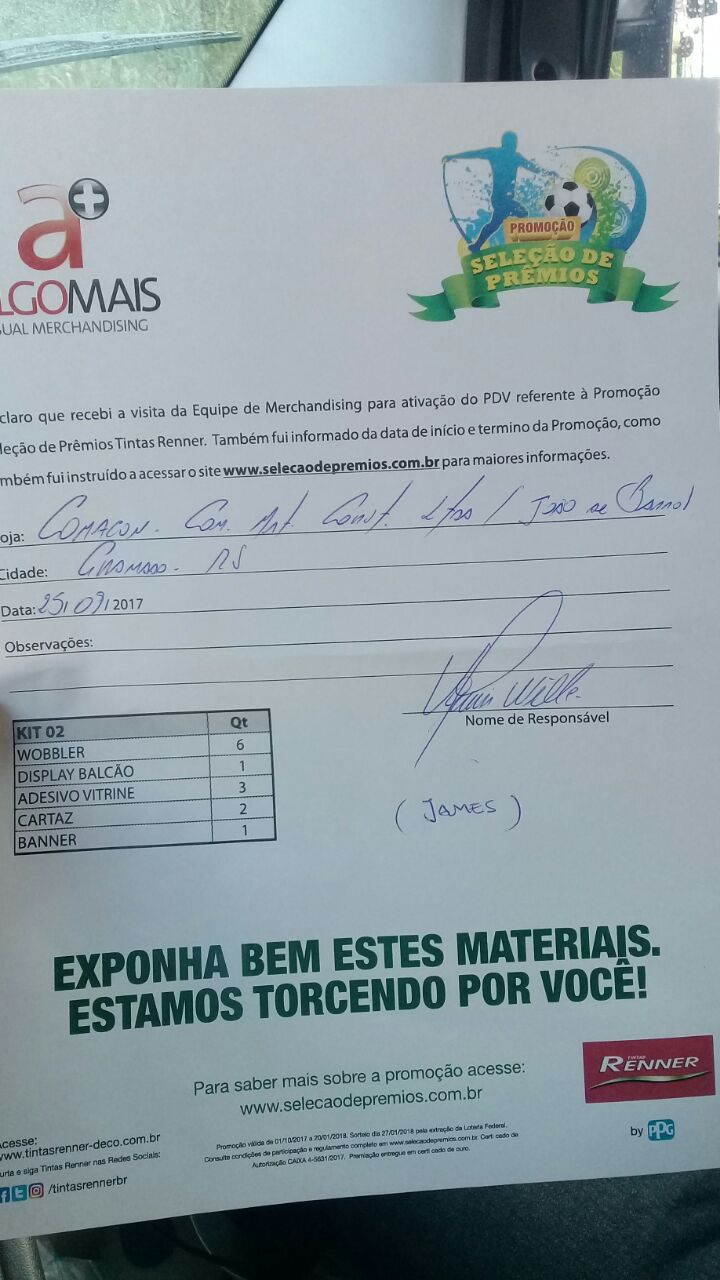 a+
LGOMAIS
SUAL MERCHANDISING
PROMOÇÃO
SELEÇÃO DE
PRÊMIOS
claro que recebi a visita da Equipe de Merchandising para ativação do PDV referente à Promoção
leção de Prêmios Tintas Renner. Também fui informado da data de início e termino da Promoção, como
mbém fui instruído a acessar o site www.selecaodepremios.com.br para maiores informações.
oja: Comacon. Com. Mat. Const. Ltda / João de Barro
Cidade: Gramado - RS
Data: 25/09/2017
Observações:
Nome de Responsável
(JAMES)
KIT 02 Qt
WOBBLER 6
DISPLAY BALCÃO 1
ADESIVO VITRINE 3
CARTAZ 2
BANNER 1
EXPONHA BEM ESTES MATERIAIS.
ESTAMOS TORCENDO POR VOCÊ!
TINTAS
RENNER
by PPG
Para saber mais sobre a promoção acesse:
www.selecaodepremios.com.br
Acesse:
www.tintasrenner-deco.com.br
urta e siga Tintas Renner nas Redes Sociais:
/tintasrennerbr
Promoção válida de 01/10/2017 a 20/01/2018. Sorteio dia 27/01/2018 pela extração da Loteria Federal.
Consulta condições de participação e regulamento completo em www.selecaodepremios.com.br. Certi cado de
Autorização CAIXA 4-5631/2017. Premiação entregue em certi cado de ouro.